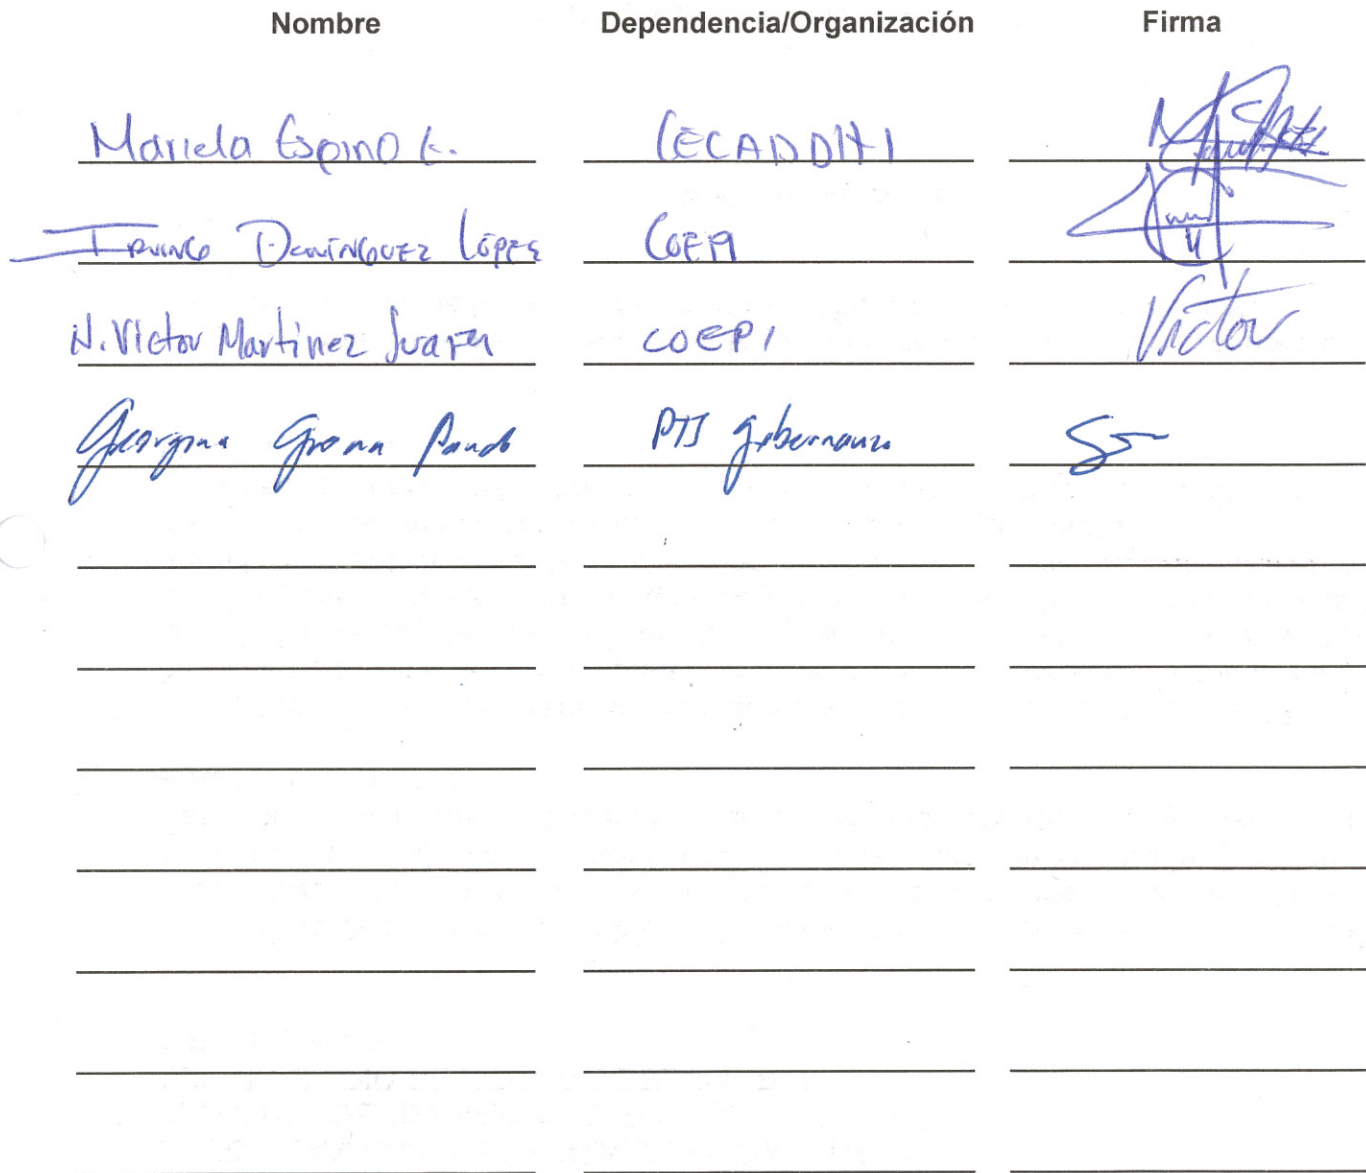 Nombre Dependencia/Organización Firma
Mariela Espino E. CECADDHI
Irving Domínguez López COEPI
N. Victor Martinez Juarez COEPI Victor
Georgina Pando PTS gobernanza